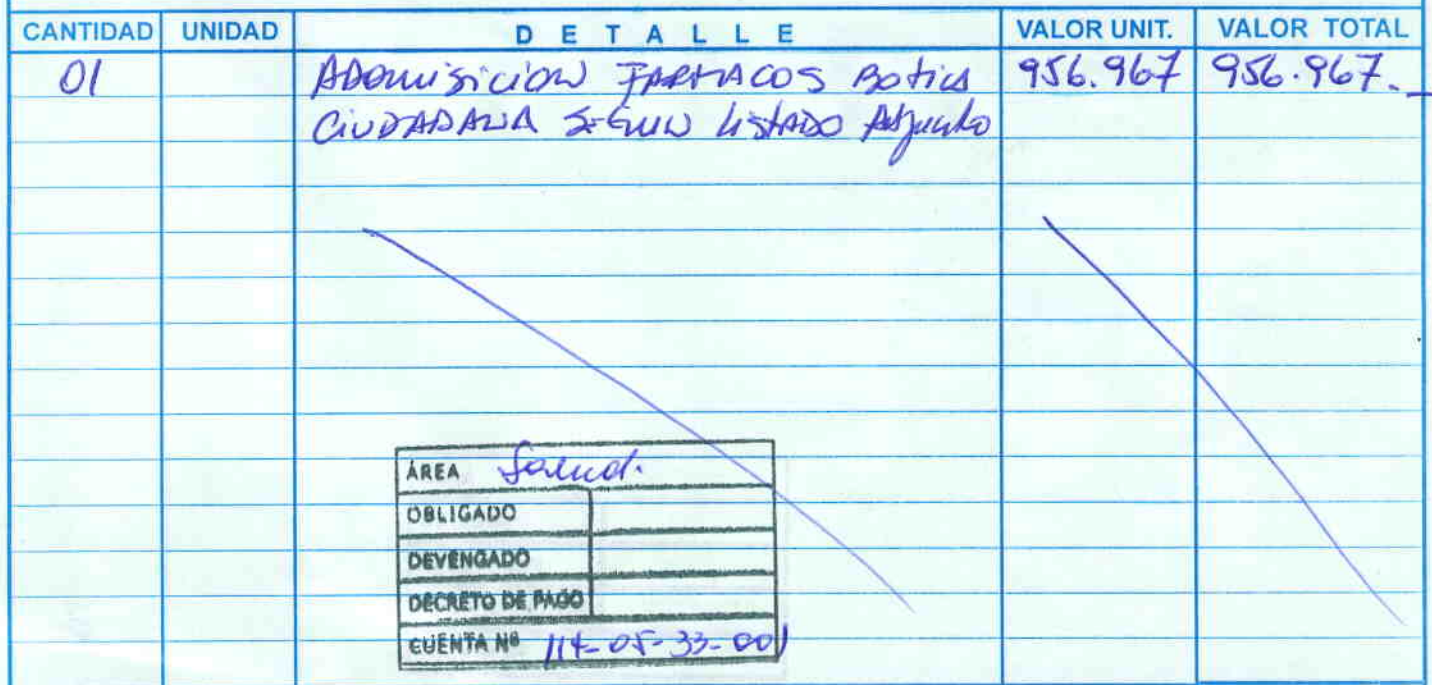 CANTIDAD UNIDAD DETALLE VALOR UNIT. VALOR TOTAL
01 ADQUISICION FARMACOS Botica 956.967 956.967.-
CIUDADANA SEGUN LISTADO Adjunto
ÁREA Salud.
OBLIGADO
DEVENGADO
DECRETO DE PAGO
CUENTA Nº 114-05-33-001